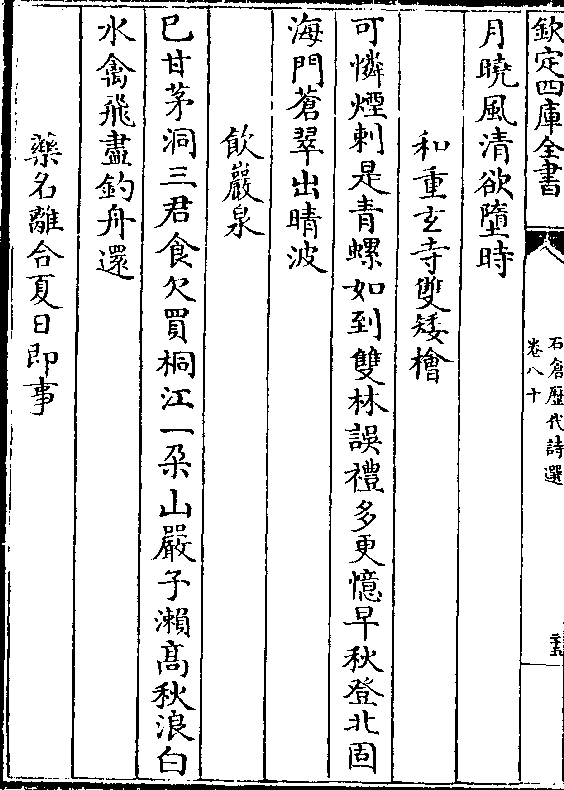 欽定四庫全書
石倉歷代詩選
卷八十
月曉風清欲墮時
和重玄寺雙矮檜
可憐煙刺是青螺如到雙林誤禮多更憶早秋登北固
海門蒼翠出晴波
飲巖泉
已甘茅洞三君食欠買桐江一朶山嚴子瀨高秋浪白
水禽飛盡釣舟還
藥名離合夏日即事